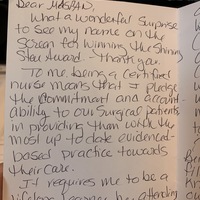 Dear MASPAN,
What a wonderful surprise
to see my name on the
screen for winning the Shining
Star Award - thank you.
To me, being a certified
nurse means that I pledge
the commitment and account-
ability to our surgical patients
in providing them with the
most up to date evidenced-
based practice towards
their care.
It requires me to be a
lifelong learner by attending